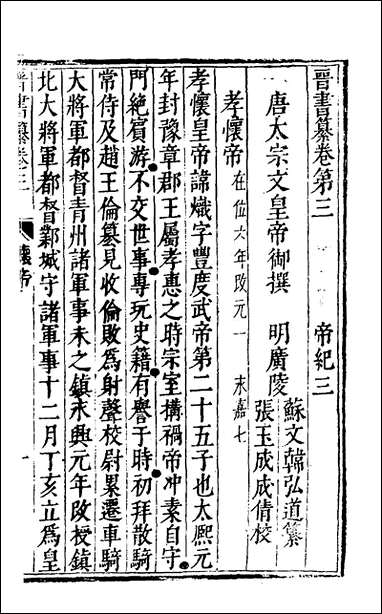 晉書纂卷第三 帝紀三
唐太宗文皇帝御撰 明廣陵 蘇文韓弘道纂
張玉成成倩校
孝懷帝 在位六年改元一 永嘉七
孝懷皇帝諱熾字豐度武帝第二十五子也太熙元
年封豫章郡王屬孝惠之時宗室搆禍帝冲素自守
門絶賓游不交世事專玩史籍有譽于時初拜散騎
常侍及趙王倫簒見收倫敗爲射聲校尉累遷車騎
大將軍都督青州諸軍事未之鎮永興元年改授鎮
北大將軍都督鄴城守諸軍事十二月丁亥立爲皇
晉書纂卷三 懷帝 一